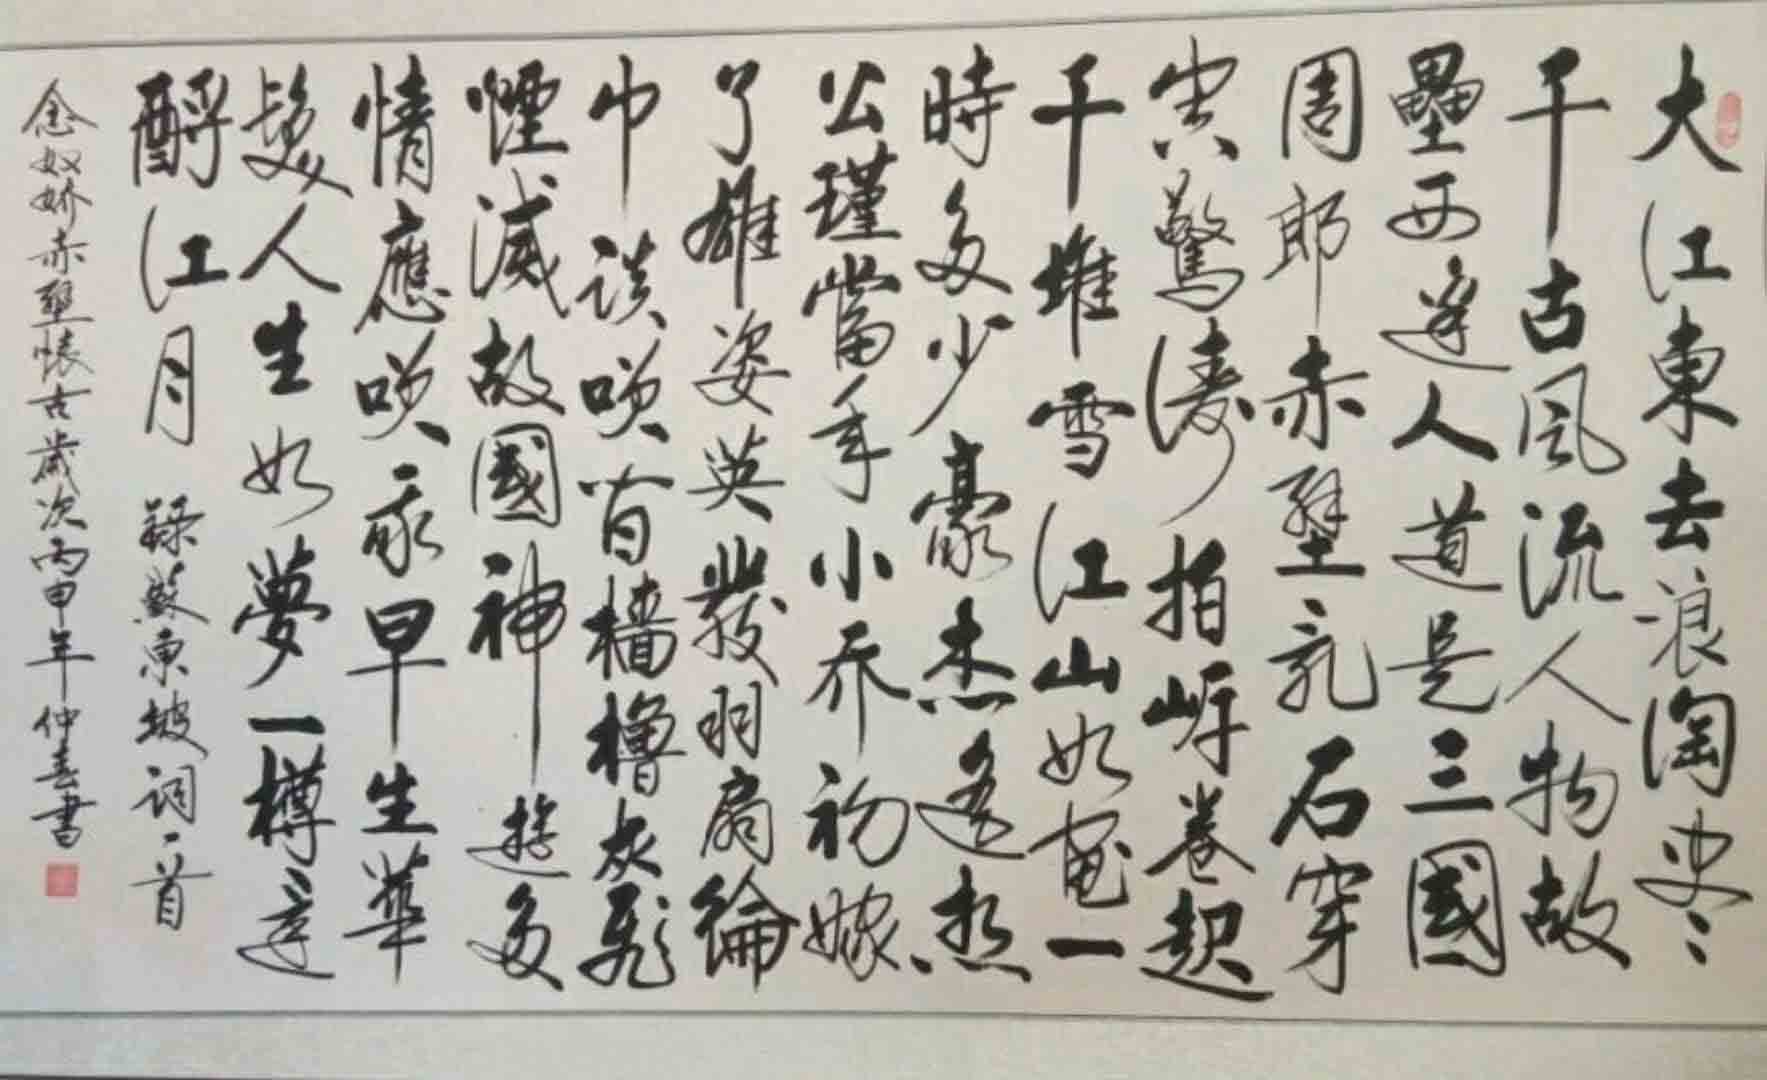 大江東去浪淘尽
千古風流人物故
壘西邊人道是三國
周郎赤壁乱石穿
空驚濤拍岸卷起
千堆雪江山如畫一
時多少豪杰遙想
公瑾當年小乔初嫁
了雄姿英發羽扇綸
巾談笑间檣櫓灰飛
煙滅故國神遊多
情應笑我早生華
髮人生如夢一樽還
酹江月 錄蘇東坡詞一首
念奴娇赤壁懷古歲次丙申年仲喜書